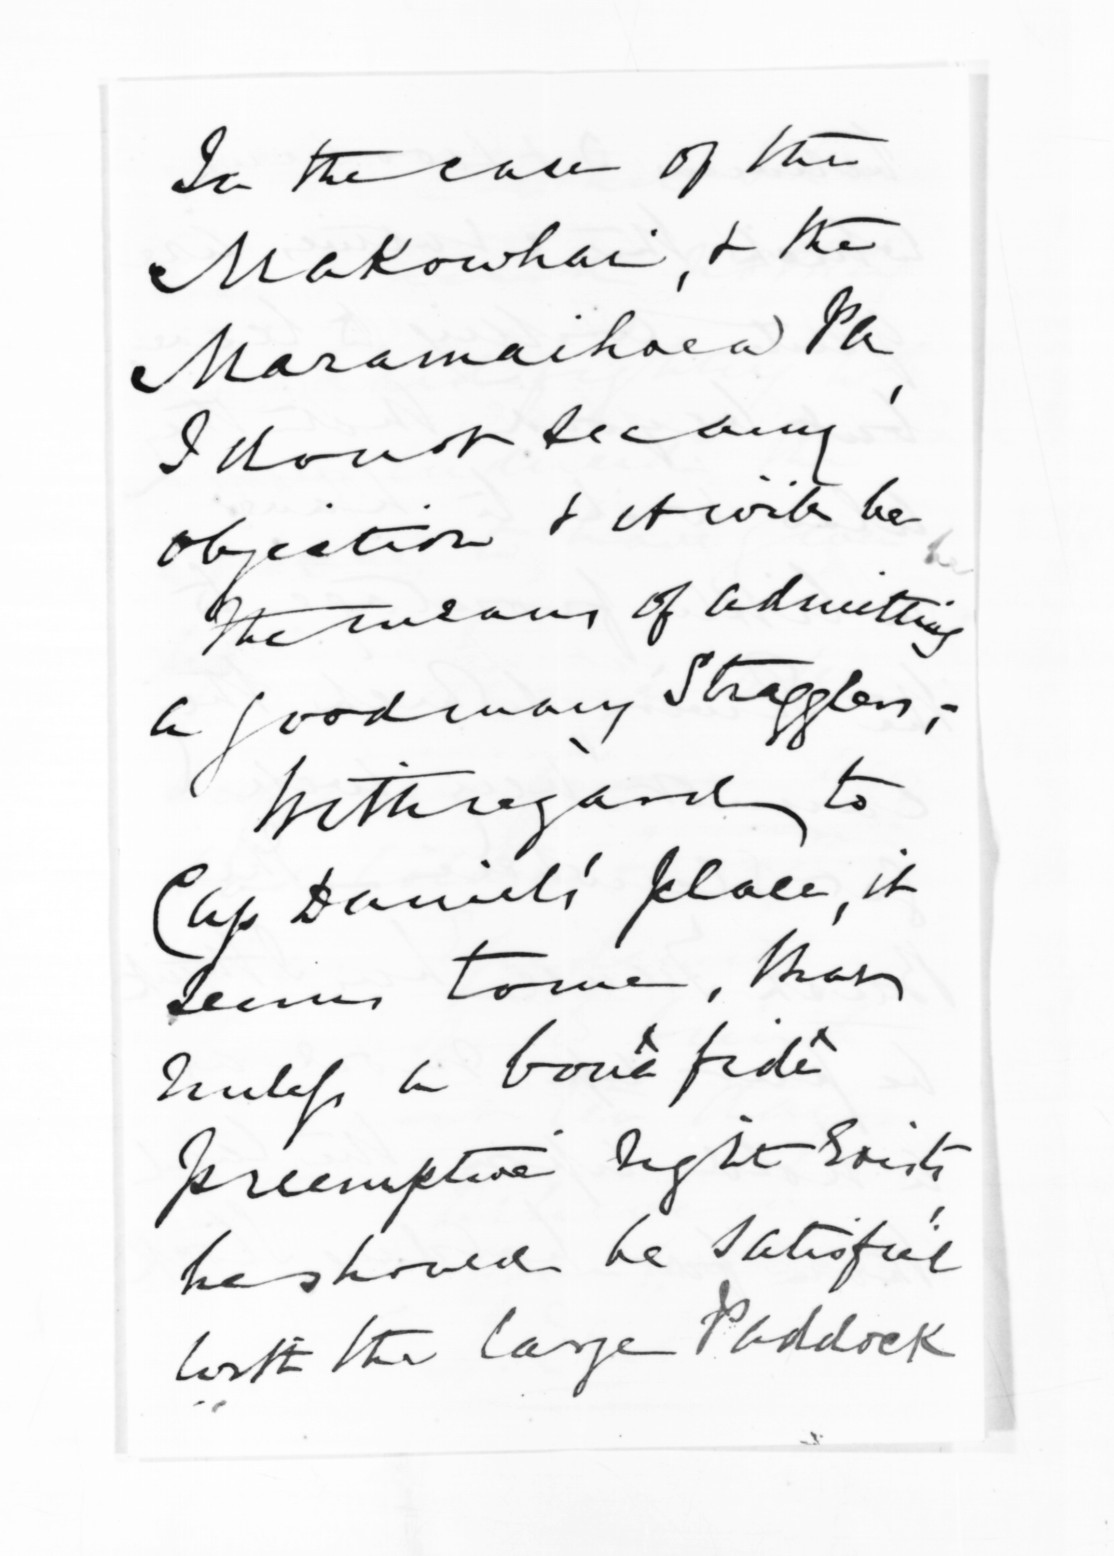 In the case of the
Makowhai, & the
Maramaihoea Pa,
I do not see any
objection & it will be
the means of admitting
a good many Stragglers,-
With regard to
Cap Daniels' place, it
seems to me, that
unless a bonâ fidê
preemptive right Exists,
he should be satisfied
with the large Paddock